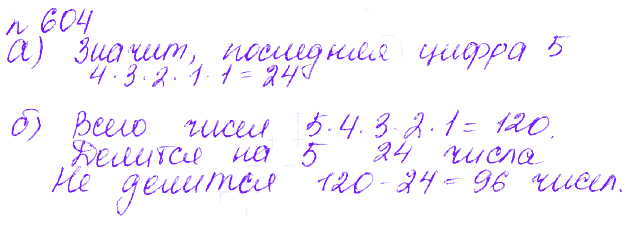 п 604
а) Значит, последняя цифра 5
4·3·2·1·1=24
б) Всего чисел 5·4·3·2·1=120.
Делится на 5 24 числа
Не делится 120-24=96 чисел.